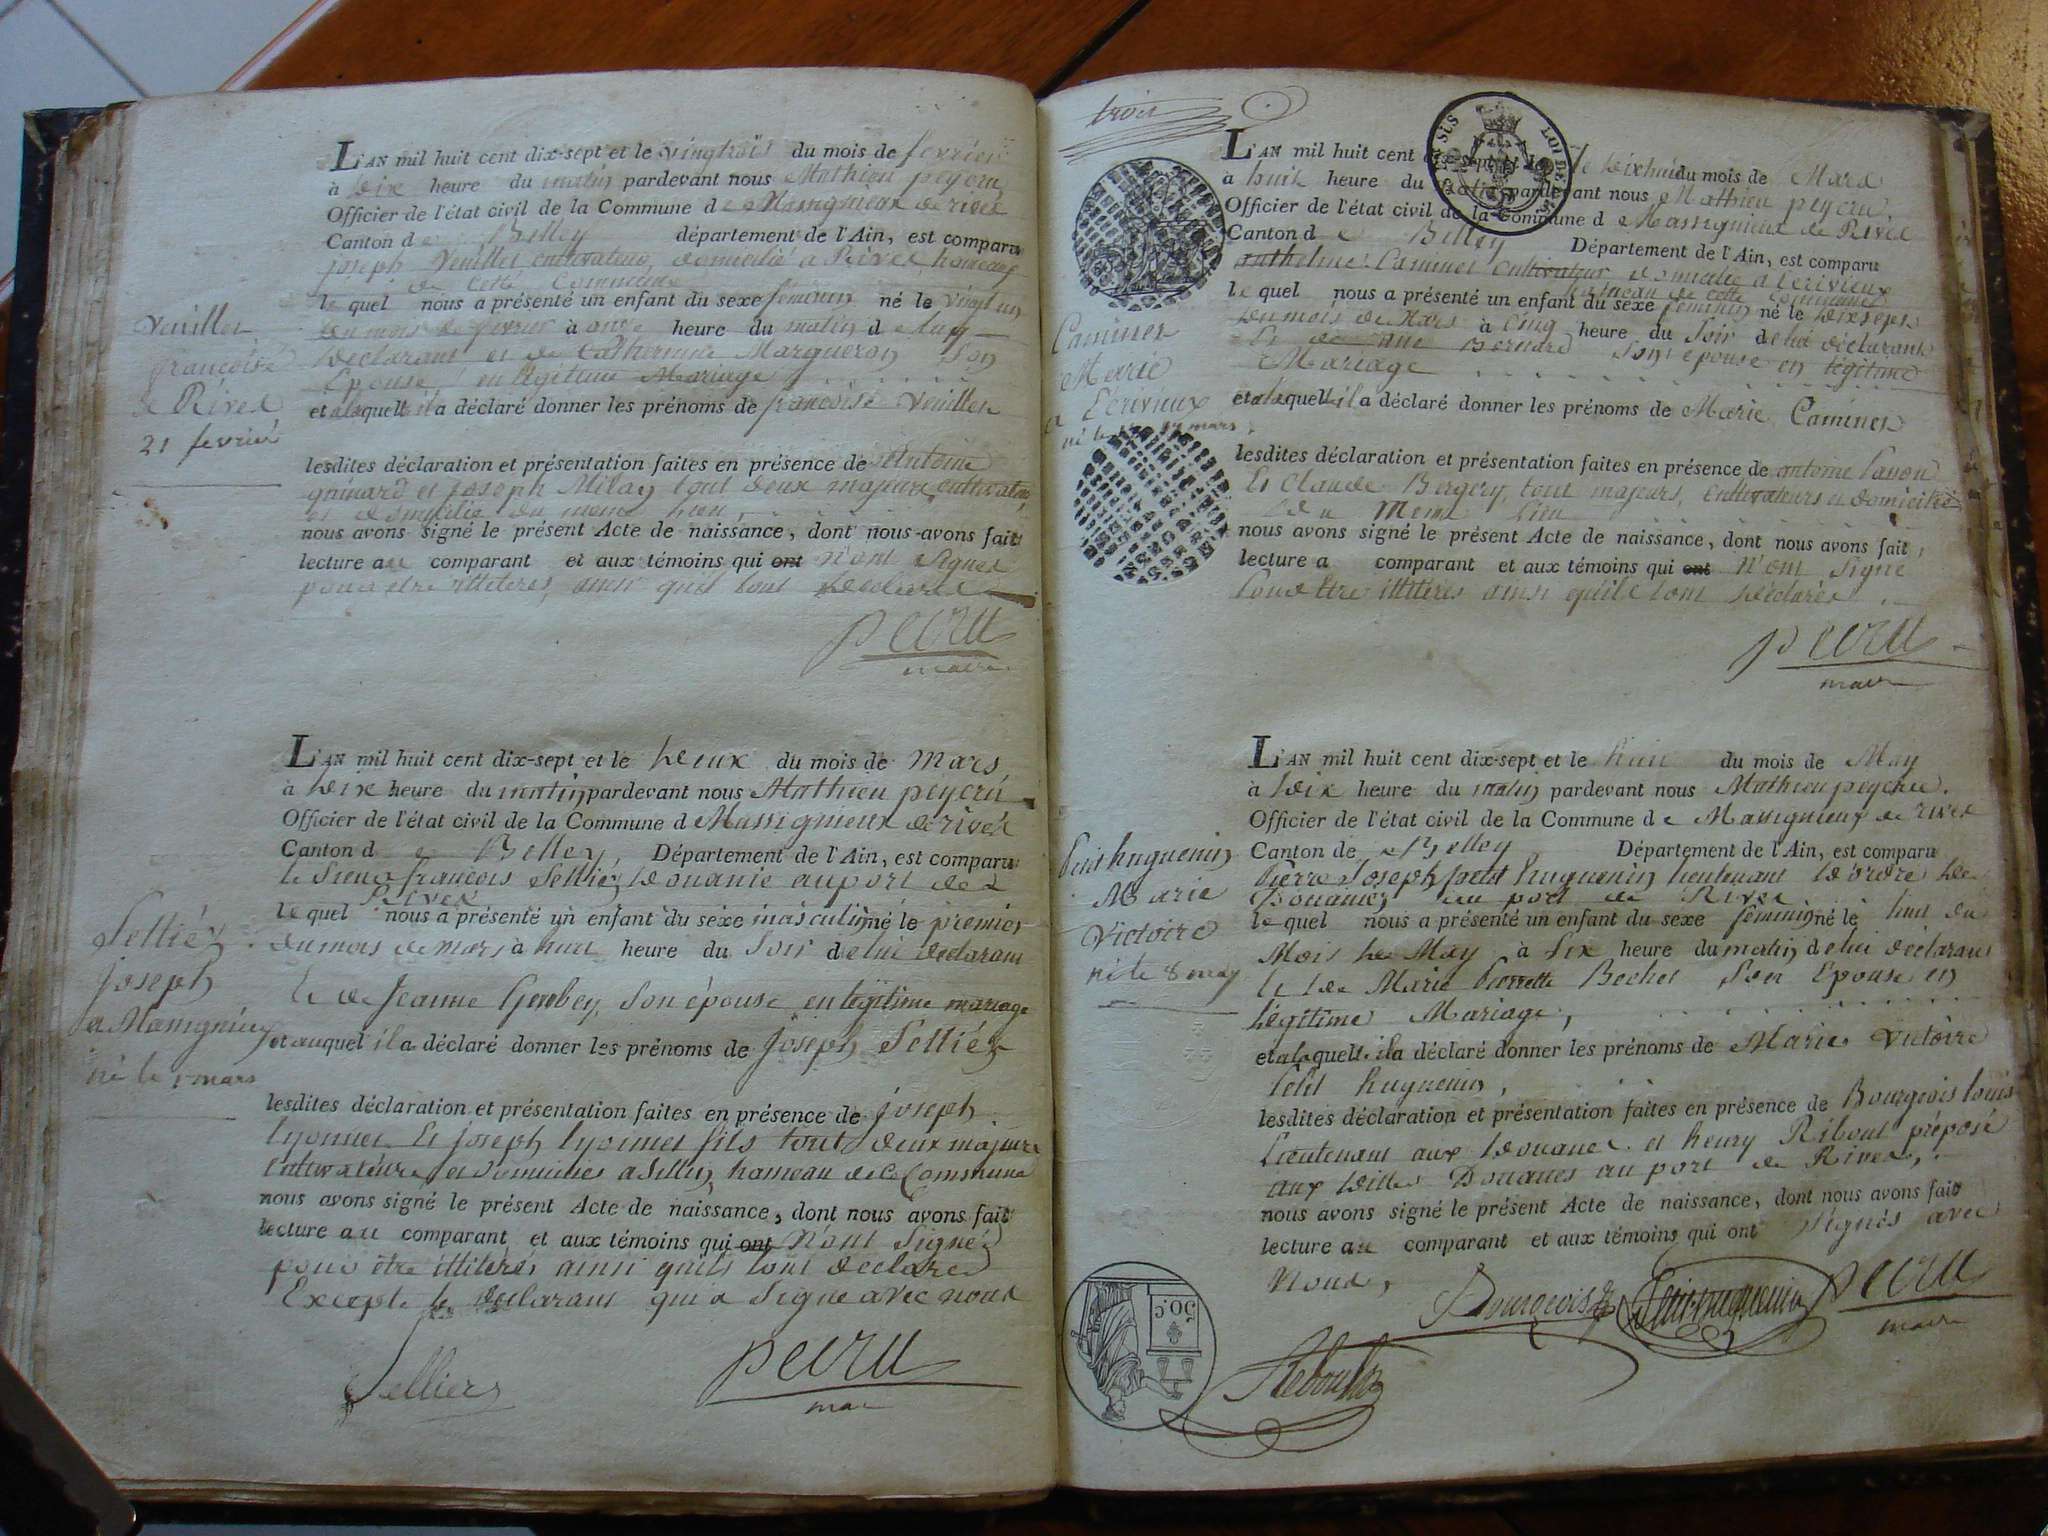 L'AN mil huit cent dix-sept et le vingtrois du mois de fevrier
à dix heure du matin pardevant nous Mathieu peyeru
Officier de l'état civil de la Commune de Massignieux de rives
Canton de Belley département de l'Ain, est comparu
joseph Veuillet cultivateur, domicilié a Rives, hameau
de cette Commune
le quel nous a présenté un enfant du sexe feminin né le vingt un
du mois de fevrier à onze heure du matin d
declarant et de Catherinne Margueron Son
Epouse, en legitime Mariage
et a laquelle il a déclaré donner les prénoms de francoise Veuillet
Veuillet
francoise
de Rives
21 fevrier
lesdites déclaration et présentation faites en présence de Antoine
guinard et joseph Milay tout deux majeurs, cultivateurs,
et domicilié du meme lieu,
nous avons signé le présent Acte de naissance, dont nous avons fait
lecture au comparant et aux témoins qui ont n'ont Signes
pour etre illiteres, ainsi quil lont declarés
peuru
maire
L'AN mil huit cent dix-sept et le deux du mois de Mars
à dix heure du matin pardevant nous Mathieu peyeru
Officier de l'état civil de la Commune d Massignieux de rives
Canton de Belley, Département de l'Ain, est comparu
le Sieur francois Sellier, douanié au port de
Rives
le quel nous a présenté un enfant du sexe masculin né le premier
du mois de mars à huit heure du Soir de lui declarant
Et de Jeanne Gerbey, Son épouse en légitime mariage
et auquel il a déclaré donner les prénoms de joseph Selliér
Selliér
joseph
a Massignieu
né le 1 mars
lesdites déclaration et présentation faites en présence de joseph
lyonnet Et joseph lyonnet fils tout deux majeurs
Cultivateurs et domicilies a Sillin, hameau de Ce Commune
nous avons signé le présent Acte de naissance, dont nous avons fait
lecture au comparant et aux témoins qui ont N'ont Signés
pour être illiterés ainsi quils lont déclarés
Excepte le declarant qui a Signe avec nous
Sellier
peuru
maire
trois
L'AN mil huit cent dix-sept et le dixhuit du mois de Mars
à huit heure du matin pardevant nous Mathieu peyeru,
Officier de l'état civil de la Commune d Massignieux de Rives
Canton de Belley Département de l'Ain, est comparu
anthelme Caminet Cultivateur domicilie a lecrivieux
hameau de cette Commune
le quel nous a présenté un enfant du sexe feminin né le dixsept
du mois de Mars à Cinq heure du Soir de lui déclarant
Et de Bernard Son épouse en légitime
Mariage
et a laquelle il a déclaré donner les prénoms de Marie Caminet
Caminet
Marie
a Ecrivieux
né le 17 mars,
lesdites déclaration et présentation faites en présence de antoine
Et Claude Bergery, tout majeurs, Cultivateurs et domicilié
du Meme lieu
nous avons signé le présent Acte de naissance, dont nous avons fait
lecture a comparant et aux témoins qui ont N'ont Signé
Pour Etre illiterés ainsi quils lont declarés
peuru
maire
L'AN mil huit cent dix-sept et le huit du mois de May
à dix heure du matin pardevant nous Mathieu peyeru.
Officier de l'état civil de la Commune de Massignieux de rives
Canton de Belley Département de l'Ain, est comparu
Pierre Joseph petit huguenin lieutenant d'ordre des
Douanies au port de Rives
le quel nous a présenté un enfant du sexe féminin né le huit du
Mois de May à Six heure du matin de lui déclarant
Et de Marie Pierrette Bochet Son Epouse en
légitime Mariage,
et a laquelle il a déclaré donner les prénoms de Marie Victoire
Petit huguenin,
Petit huguenin
Marie
Victoire
né le 8 may
lesdites déclaration et présentation faites en présence de Bourgeois louis
Lieutenant aux Douanes et henry Riboul préposé
aux dittes Douanes au port de Rives,
nous avons signé le présent Acte de naissance, dont nous avons fait
lecture au comparant et aux témoins qui ont Signés avec
Nous,
Bourgeois
Petit huguenin
peuru
maire
Reboul
50.C